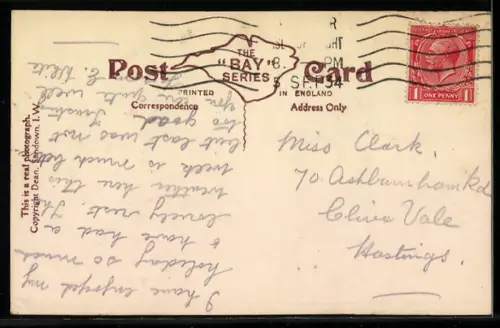 Post Card
THE
"BAY"
SERIES
PRINTED
IN ENGLAND
Correspondence
Address Only
PM
5 SP 34
ONE PENNY
1 1
This is a real photograph.
Copyright Dean, Sandown, I.W.
I have enjoyed my
holiday so much
& have had a
lovely rest. The
weather here this
week is much better
but last was not
too good. Trusting
you are quite well
E. White
Miss Clark.
70 Ashburnham Rd
Clive Vale
Hastings.